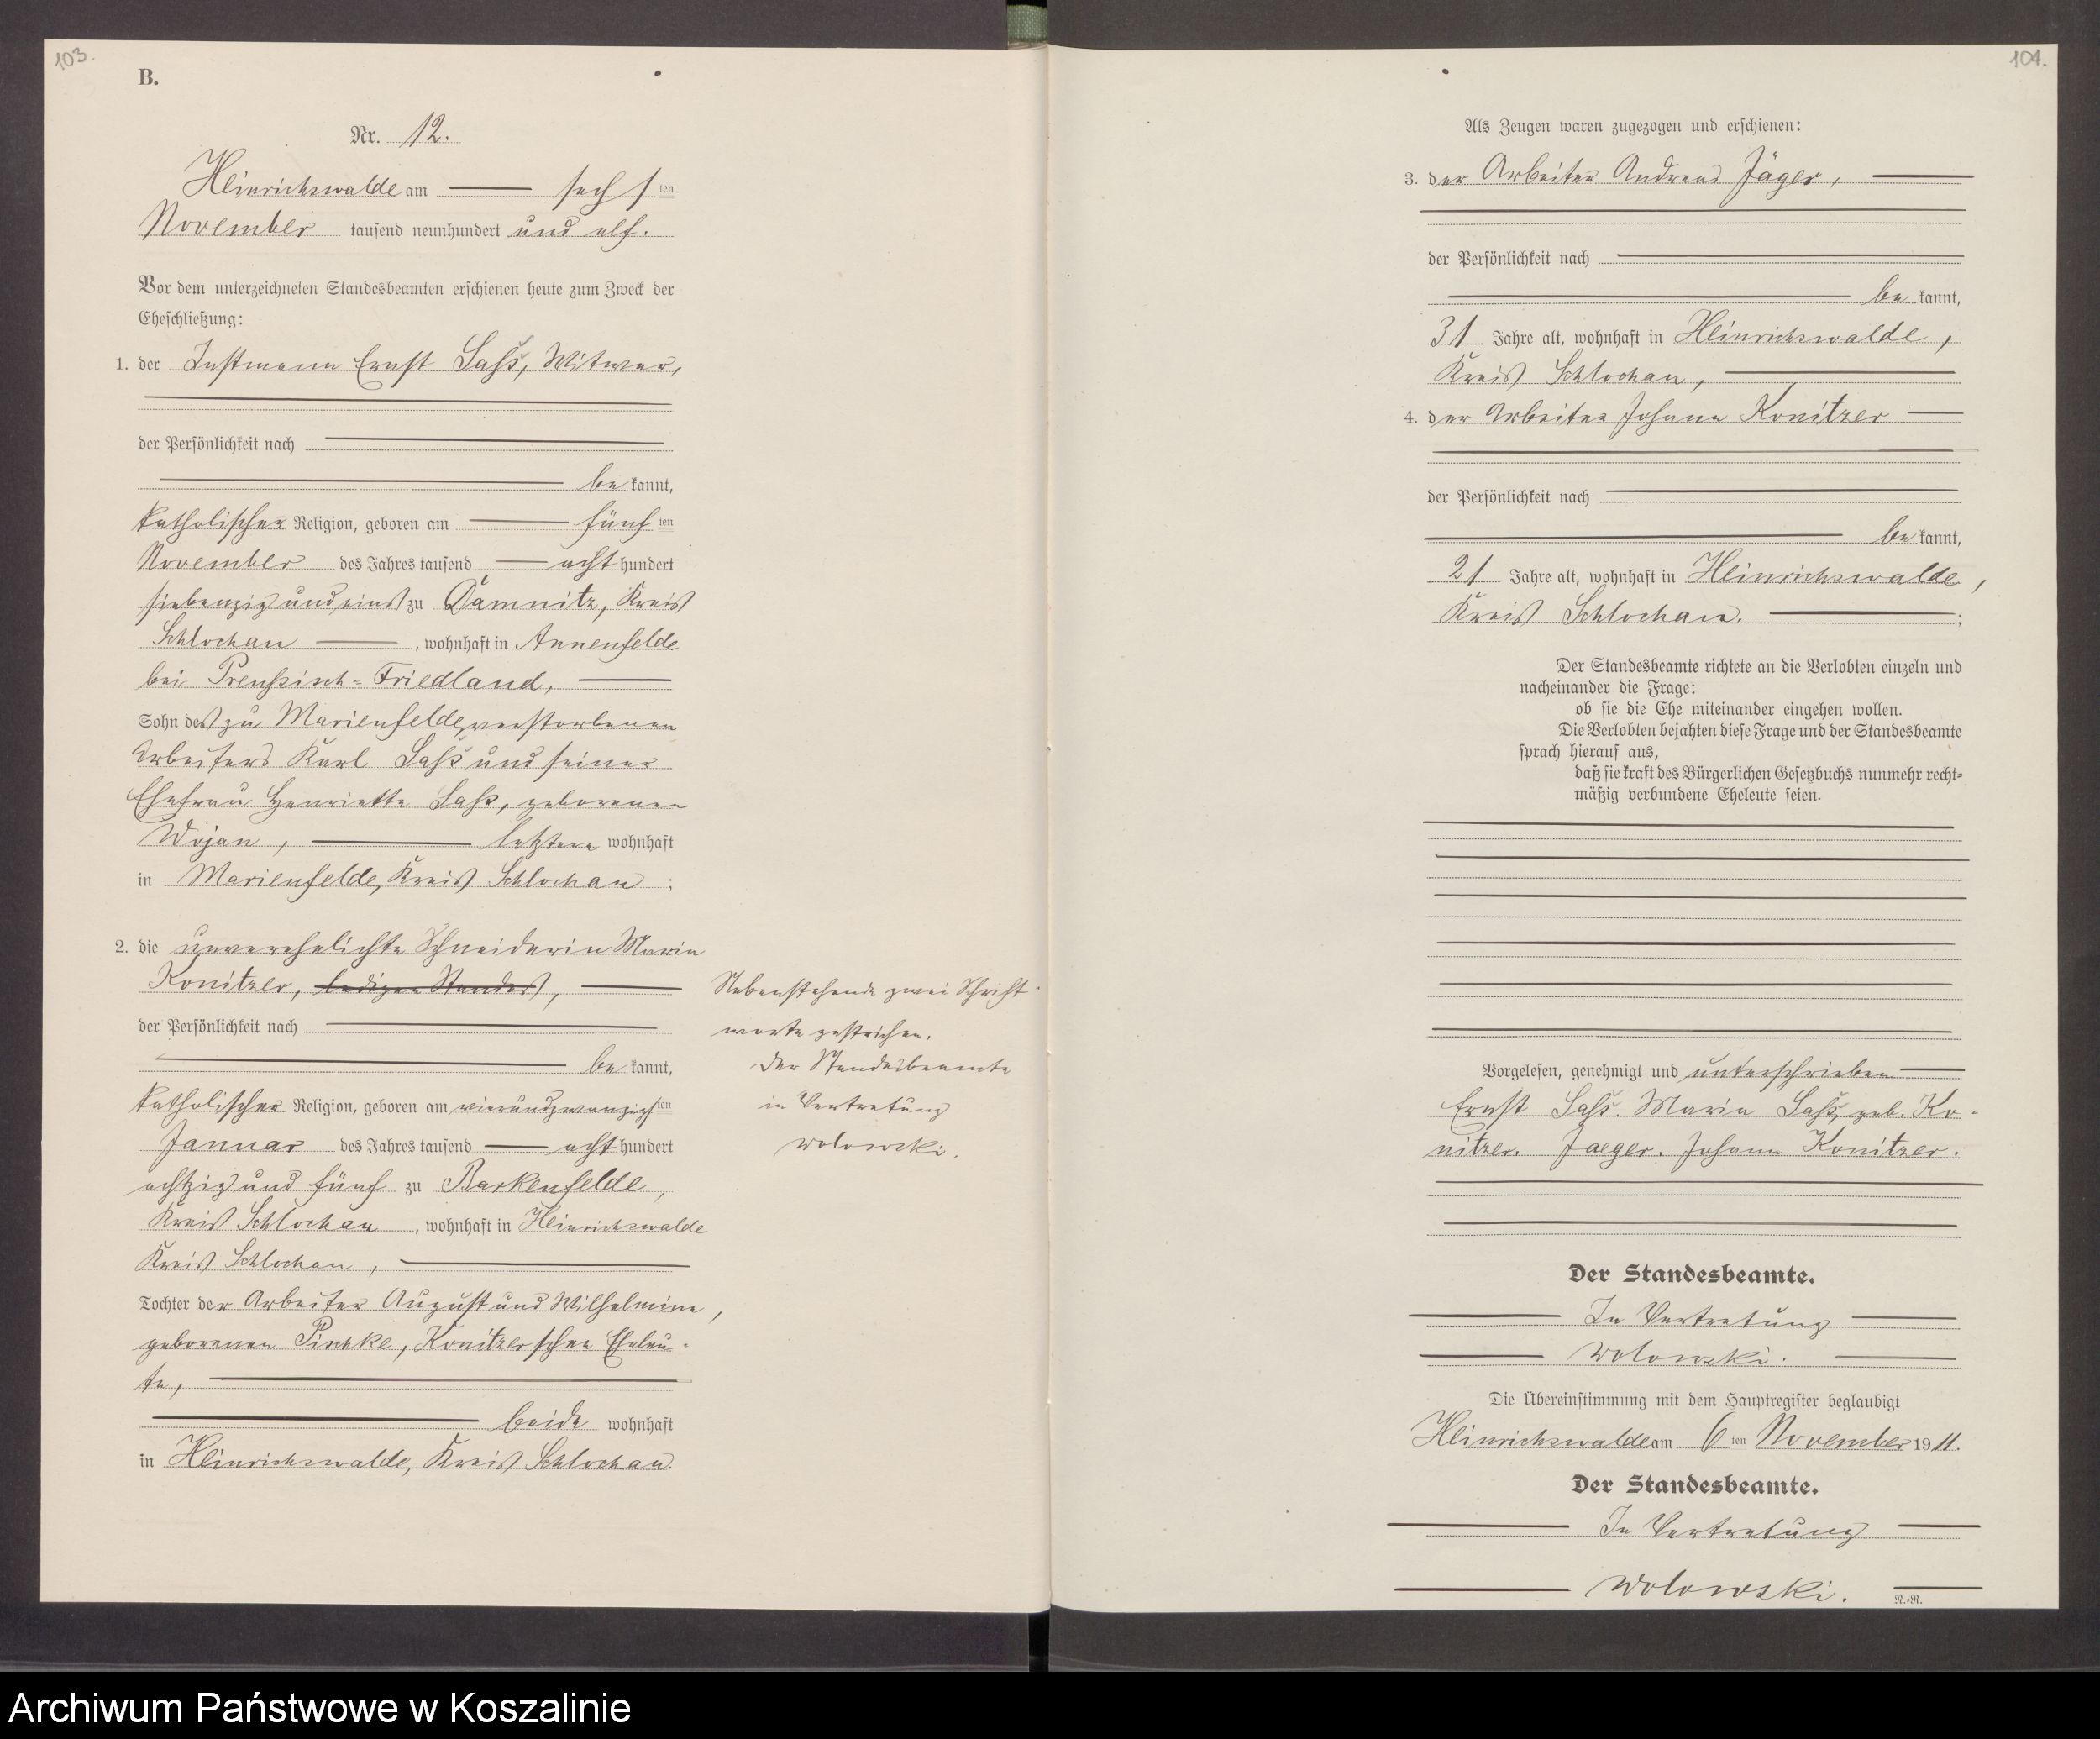 103.
B.
Nr. 12.
Heinrichswalde am sechsten
November tausend neunhundert und elf.
Vor dem unterzeichneten Standesbeamten erschienen heute zum Zweck der
Eheschließung:
1. der Instmann Ernst Saß, Witwer,
der Persönlichkeit nach
bekannt,
katholischer Religion, geboren am fünften
November des Jahres tausend achthundert
siebenzig und eins zu Damnitz, Kreis
Schlochau, wohnhaft in Annenfelde
bei Preußisch-Friedland,
Sohn des zu Marienfelde verstorbenen
Arbeiters Karl Saß und seiner
Ehefrau Henriette Saß, geborenen
Wojan, letztere wohnhaft
in Marienfelde, Kreis Schlochau;
2. die unverehelichte Schneiderin Maria
Konitzer, ledigen Standes,
der Persönlichkeit nach
bekannt,
katholischer Religion, geboren am vierundzwanzigsten
Januar des Jahres tausend achthundert
achtzig und fünf zu Barkenfelde,
Kreis Schlochau, wohnhaft in Heinrichswalde
Kreis Schlochau,
Tochter der Arbeiter August und Wilhelmine,
geborenen Pischke, Konitzerschen Eheleu-
te,
beide wohnhaft
in Heinrichswalde, Kreis Schlochau.
Nebenstehende zwei Schrift-
worte gestrichen.
Der Standesbeamte
in Vertretung
Wolowski.
104.
Als Zeugen waren zugezogen und erschienen:
3. der Arbeiter Andreas Jäger,
der Persönlichkeit nach
bekannt,
31 Jahre alt, wohnhaft in Heinrichswalde,
Kreis Schlochau,
4. der Arbeiter Johann Konitzer
der Persönlichkeit nach
bekannt,
21 Jahre alt, wohnhaft in Heinrichswalde,
Kreis Schlochau.;
Der Standesbeamte richtete an die Verlobten einzeln und
nacheinander die Frage:
ob sie die Ehe miteinander eingehen wollen.
Die Verlobten bejahten diese Frage und der Standesbeamte
sprach hierauf aus,
daß sie kraft des Bürgerlichen Gesetzbuchs nunmehr recht-
mäßig verbundene Eheleute seien.
Vorgelesen, genehmigt und unterschrieben
Ernst Saß. Maria Saß, geb. Ko-
nitzer. Jaeger. Johann Konitzer.
Der Standesbeamte.
In Vertretung
Wolowski.
Die Übereinstimmung mit dem Hauptregister beglaubigt
Heinrichswalde am 6ten November 1911.
Der Standesbeamte.
In Vertretung
Wolowski.
N.-N.
Archiwum Państwowe w Koszalinie